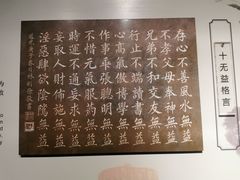 十无益格言
存心不善風水無益
不孝父母奉神無益
兄弟不和交友無益
行止不端讀書無益
心高氣傲博學無益
作事乖張聰明無益
時運不通妄求無益
妄取人財布施無益
不惜元氣服藥無益
淫惡肆欲陰騭無益